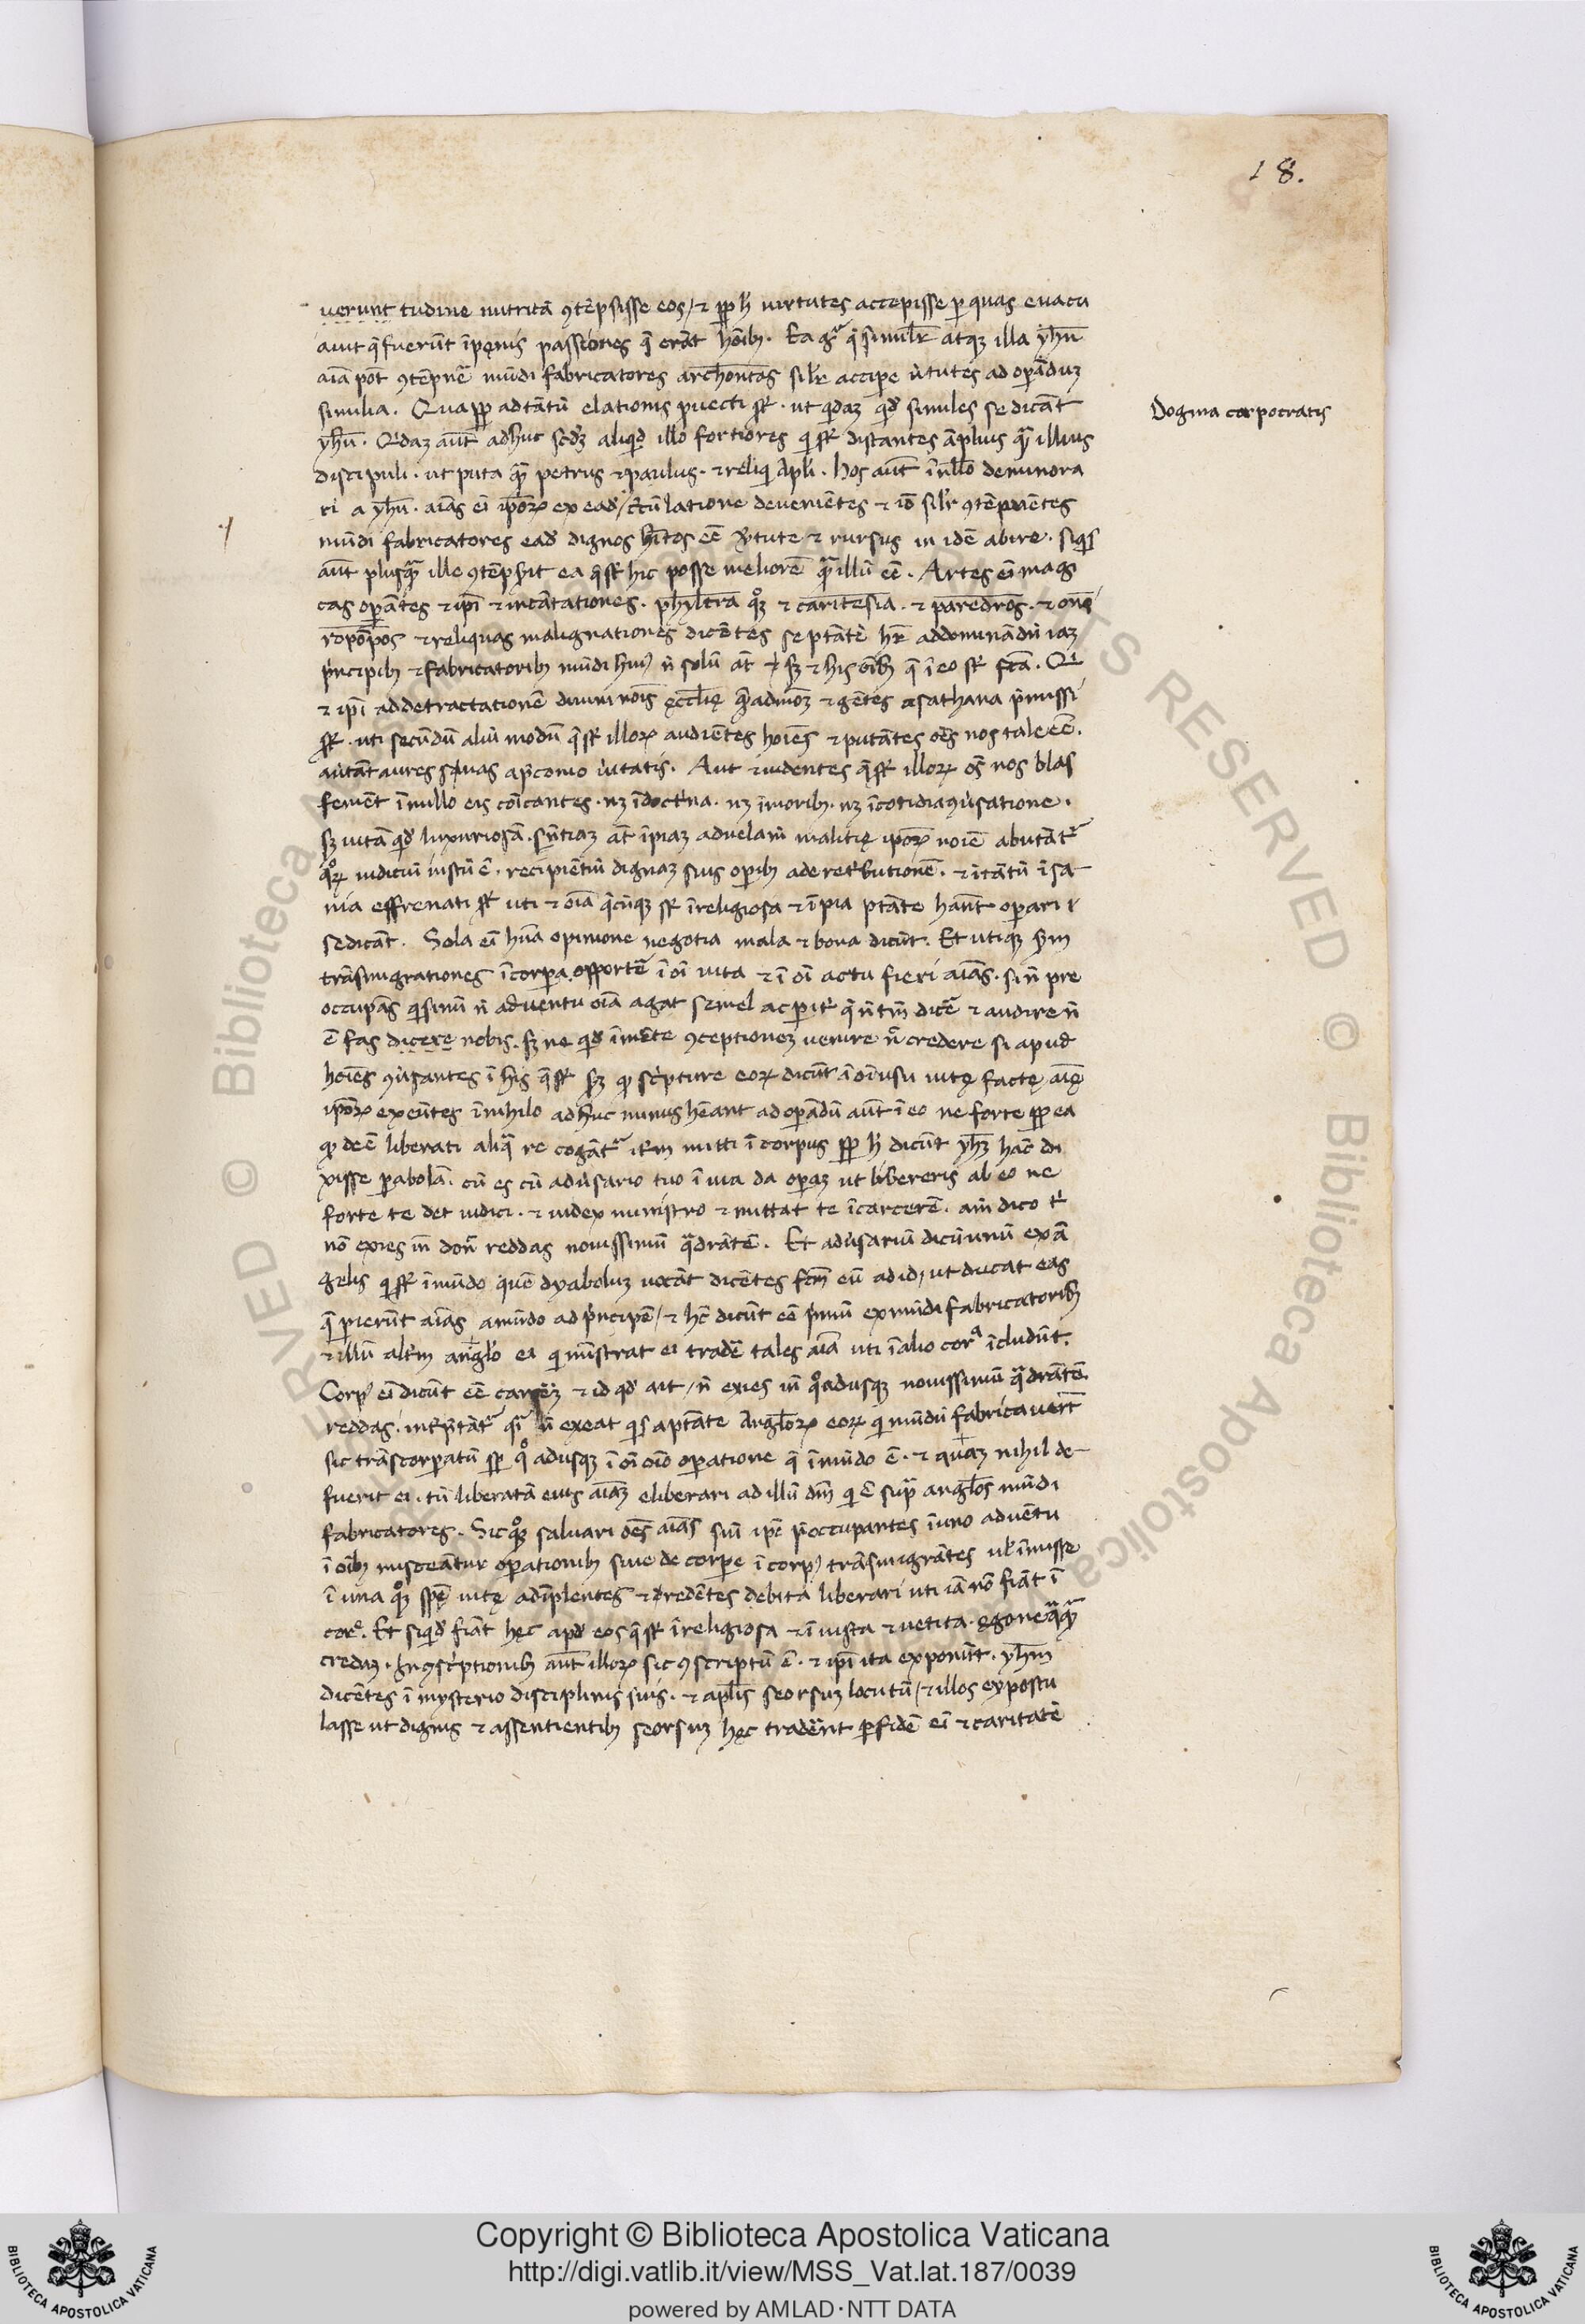 18.
uerunt tudine nutritā ꝯtēpsisse eos / ⁊ ꝓpt h̄ uirtutes accepisse ꝑ quas euacu
auit q̄ fuerūt ī pęnis passiones q̄ erāt hōib₉. Ea gͣ q̄ simulr̄ atqꝫ illa yhū
aīa pōt ꝯtēpnē mūdi fabricatores archontas silr̄ accipe ùtutes ad oꝑādū
similia. Qua ꝓp ad tātū elationis puecti sūt. ut qdaꝫ qd̄ similes se dicāt
Dogma carpocratis
yhū. Qdaꝫ aūt adhuc scd̄ꝫ aliqd illo fortiores q sūt distantes āplius qͣ illius
discipuli. ut puta qͣ petrus ⁊ paulus. ⁊ reliqi apl̄i. hos aūt ī nl̄lo deminora
ri a yhū. aīas eī ipoꝝ ex ead̄ / ccūlatione deuenietes ⁊ iō silr̄ ꝯtēpnētes
mūdi fabricatores ead̄ dignos hītos eē v̇tute ⁊ rursus in idē abire. siqs
aūt plusqͣ ille ꝯtēpserit ea q̄ sūt hic posse meliorē qͣ illū eē. Artes eī magi
cas oꝑātes ⁊ ipi ⁊ incātationes. phyltra qͦꝫ ⁊ caritesia. ⁊ paredros. ⁊ onę
ropōpos ⁊ reliquas malignationes dicētes se ptātē hr̄e ad dominādū iaꝫ
pncipib₉ ⁊ fabricatorib₉ mūdi huiꝰ n̄ solū āt sꝫ ⁊ his oīb₉ q̄ ī eo sūt fcā. Qi
⁊ ipi ad detractationē diuini noīs ęccl̄ię qͣadmoꝫ ⁊ gētes a sathana p̄missi
sūt. uti secūdū aliū modū q̄ sūt illoꝝ audiētes hoīes ⁊ putātes oēs nos tale eē.
auertāt aures suas a p̄conio ùitatis. Aut ⁊ uidentes q̄ sūt illoꝝ oēs nos blas
fement ī nullo eis cōicantes. nꝫ ī doctrina. nꝫ ī morib₉. nꝫ ī cotidiā ꝯuersatione.
sꝫ uitā qd̄ luxuriosā. sn̄tiaꝫ āt īpiaꝫ ad uelam̄ malitię ipoꝝ noīe abutātͬ
qͦꝝ iudiciū iustū ē. recipiētiū dignaꝫ suis oꝑib₉ a deo retibutionē. ⁊ ītātū īsa
nia effrenati sūt uti ⁊ oīa q̄cūqꝫ sūt īreligiosa ⁊ īpia ptāte hāt oꝑari
se dicāt. Sola eī hūa opinione negotia mala ⁊ bona dicūt. Et utiqꝫ scdm
trāsmigrationes ī corpa opportē ī oī uita ⁊ ī oī actu fieri aīas. si n̄ pre
occupās qsnū n̄ aduentu oīa agat semel ac pariť q̄ n̄ tm̄ dicē ⁊ audire n̄
ē fas dicere nobis. sꝫ ne qd̄ ī mēte ꝯceptioneꝫ uenire n̄ credere si apud
hoīes ꝯuersantes ī his q̄ sūt scdꝫ qͦ scripture eoꝝ dicūt ī oī usu uitę factę aīę
ipoꝝ exeūtes ī nihilo adhuc minus hēant ad oꝑādū aūt ī eo ne forte ꝓpt ea
qͦ deē liberati aliqͣ re cogātͬ iťm mitti ī corpus ꝓpt h̄ dicūt yhꝫ hāc di
xisse ꝑabolā. cū es cū aduersario tuo ī uia da oꝑaꝫ ut libereris ab eo ne
forte te det iudici. ⁊ iudex ministro ⁊ mittat te ī carcerē. am̄ dico t'
nō exies in̄ don̄ reddas nouissimū qͣdrātē. Et aduersariū dicūt unū ex ā
gelis q sūt ī mūdo quē dyaboluꝫ uocāt dicētes fcm̄ eū ad id, ut ducat eas
q̄ pierūt aīas a mūdo ad pncipē / ⁊ hc̄ dicūt eē primū ex mūdi fabricatorib₉
⁊ illū alťm anglo ei q ministrat ei tradē tales aīa uti ī alio corͤ īcludāt.
Corpꝰ eī dicūt eē carcerē ⁊ id qd̄ ait / n̄ exies in̄ qͦadusqꝫ nouissimū qͣdrātē
reddas. inťptātͬ qͣi n̄ exeat qs a ptāte angloꝝ eoꝝ q mūdū fabricauert
sic trāscorpatū sp̄ qͦ adusqꝫ ī oī oīo oꝑatione q̄ ī mūdo ē. ⁊ quaꝫ nihil de
fuerit ei. tū liberatā eius aīaꝫ eliberari ad illū dm̄ q ē supͣ anglos mūdi
fabricatores. Sic qͦꝫ saluari oēs aīas siue ipe p̄occupantes ī uno aduētu
ī oīb₉ misceāntur oꝑationib₉ siue de corpe ī corpꝰ trāsmigrātes ul̄ īmisse
ī una qͦꝫ spē uitę adīplentes ⁊ credētes debita liberari uti iā nō fiāt ī
corͤ. Et siqd̄ fiāt hęc apd̄ eos q̄ sūt īreligiosa ⁊ ī iusta ⁊ uetita. ęgone qͣqͣ
credaꝫ. In ꝯscriptionib₉ aūt illoꝝ sic ꝯscriptū ē. ⁊ ipi ita exponūt. yhm̄
dicētes ī mysterio disciplinis suis. ⁊ apl̄is seorsuꝫ locutū / ⁊ illos expostu
lasse ut dignis ⁊ assentientib₉ seorsuꝫ hęc traderēt ꝑ fidē eī ⁊ caritatē
Copyright © Biblioteca Apostolica Vaticana
http://digi.vatlib.it/view/MSS_Vat.lat.187/0039
powered by AMLAD·NTT DATA
BIBLIOTECA APOSTOLICA VATICANA
BIBLIOTECA APOSTOLICA VATICANA